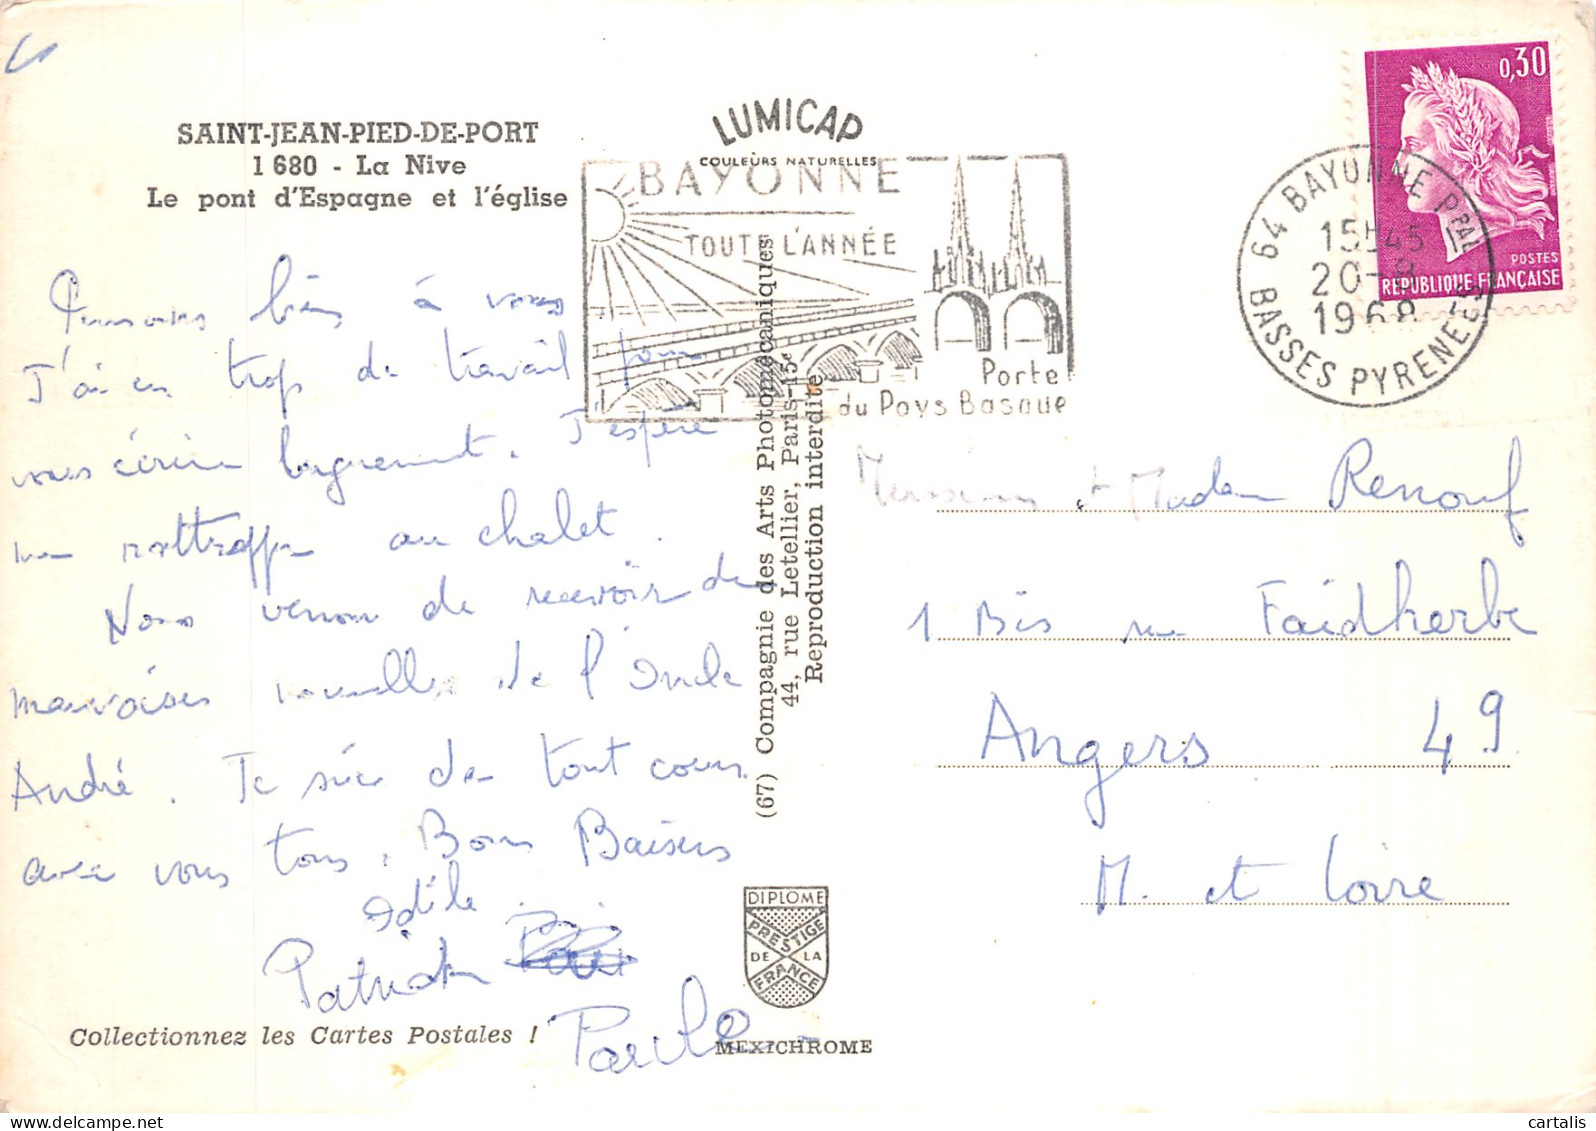 SAINT-JEAN-PIED-DE-PORT
1 680 - La Nive
Le pont d'Espagne et l'église
LUMICAP
COULEURS NATURELLES
BAYONNE
TOUTE L'ANNÉE
Porte
du Pays Basque
0,30
POSTES
REPUBLIQUE FRANÇAISE
64 BAYONNE Pᴾᴬᴸ
15H45
20-8
1968
BASSES PYRENEES
Pensons bien à vous
J'ai eu trop de travail pour
vous écrire longuement. J'espère
me rattrapper au chalet.
Nous venons de recevoir de
mauvaises nouvelles de l'Oncle
André. Je suis de tout coeur
avec vous tous. Bons Baisers
Odile
Patrick
Collectionnez les Cartes Postales !
(67) Compagnie des Arts Photomécaniques
44, rue Letellier, Paris-15e
Reproduction interdite
DIPLOME
PRESTIGE
DE LA
FRANCE
MEXICHROME
Monsieur et Madame Renouf
1 Bis rue Faidherbe
Angers 49
M. et Loire
cartalis
delcampe.net